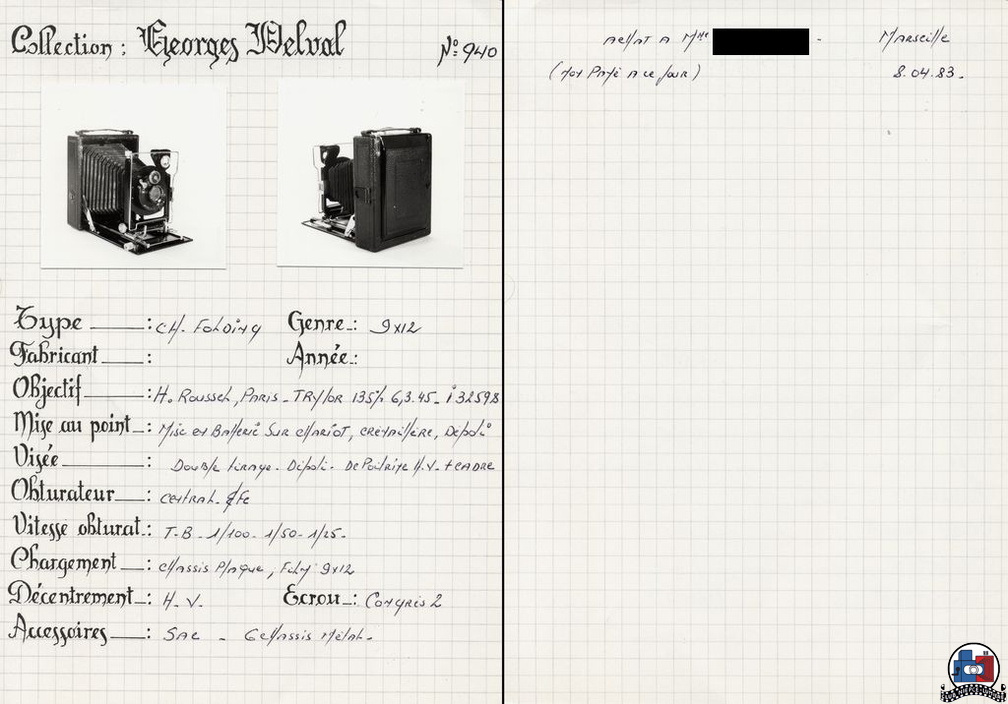 Collection : Georges Delval
Nº 940
Type : CH. Folding Genre : 9x12
Fabricant : Année :
Objectif : H. Roussel, Paris - TRylor 135% 6,3.45 - i 32598
Mise au point : Mise en Batterie Sur chariot, crémaillère, Dépoli
Visée : Double tirage - Dépoli - De Poitrine H.V. + CADRE
Obturateur : central
Vitesse obturat. : T-B - 1/100 - 1/50 - 1/25 -
Chargement : chassis Plaque, Film 9x12
Décentrement : H. V. Ecrou : Congrès 2
Accessoires : SAC - 6 chassis Métal -
Achat A Mme - Marseille
(non Payé A ce jour) 8.04.83.